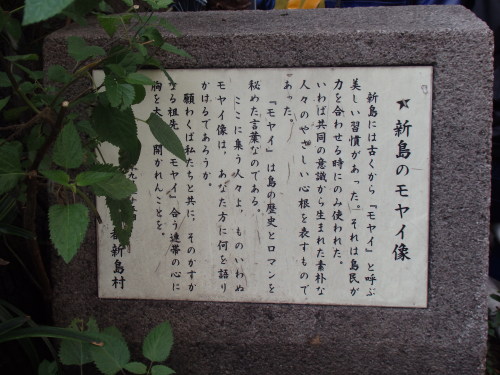 ★ 新島のモヤイ像
新島には古くから『モヤイ』と呼ぶ
美しい習慣があった。それは島民が
力を合わせる時にのみ使われた。
いわば共同の意識から生まれた素朴な
人々のやさしい心根を表すもので
あった。
『モヤイ』は島の歴史とロマンを
秘めた言葉なのである。
ここに集う人々よ、ものいわぬ
モヤイ像は、あなた方に何を語り
かけるであろうか。
願わくば私たちと共に、そのかすか
なる祖先 モヤイ』合う連帯の心に
胸を 開かれんことを。
新島村